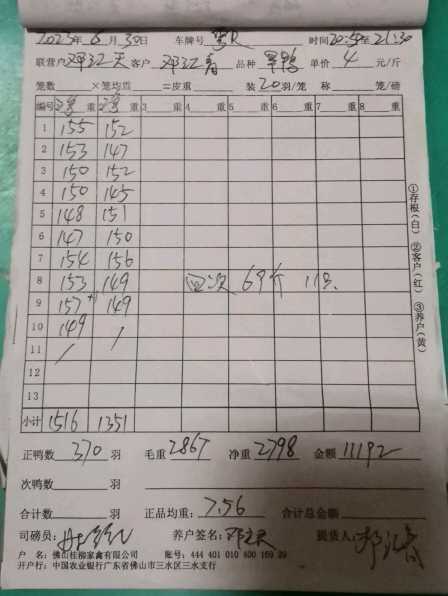 2023年6月30日 车牌号 时间20:50至21:30
联营户邓江天 客户 邓江春 品种 单价 4 元/斤
笼数 ×笼均重 =皮重 装20羽/笼 称 笼/磅
编号 重 重 3 重 4 重 5 重 6 重 7 重 8 重
1 155 152
2 153 147
3 150 152
4 150 145
5 148 151
6 147 150
7 154 156
8 153 149 69斤
9 157 149
10 149 /
11 /
12
13
小计 1516 1351
正鸭数 370 羽 毛重 2867 净重 2798 金额 11192
次鸭数 羽
合计数 羽 正品均重: 7.56 合计总金额
司磅员: 养户签名: 提货人:
户 名: 佛山桂柳家禽有限公司 账号: 444 401 010 400 159 29
开户行: 中国农业银行广东省佛山市三水区三水支行
①存根(白) ②客户(红) ③养户(黄)